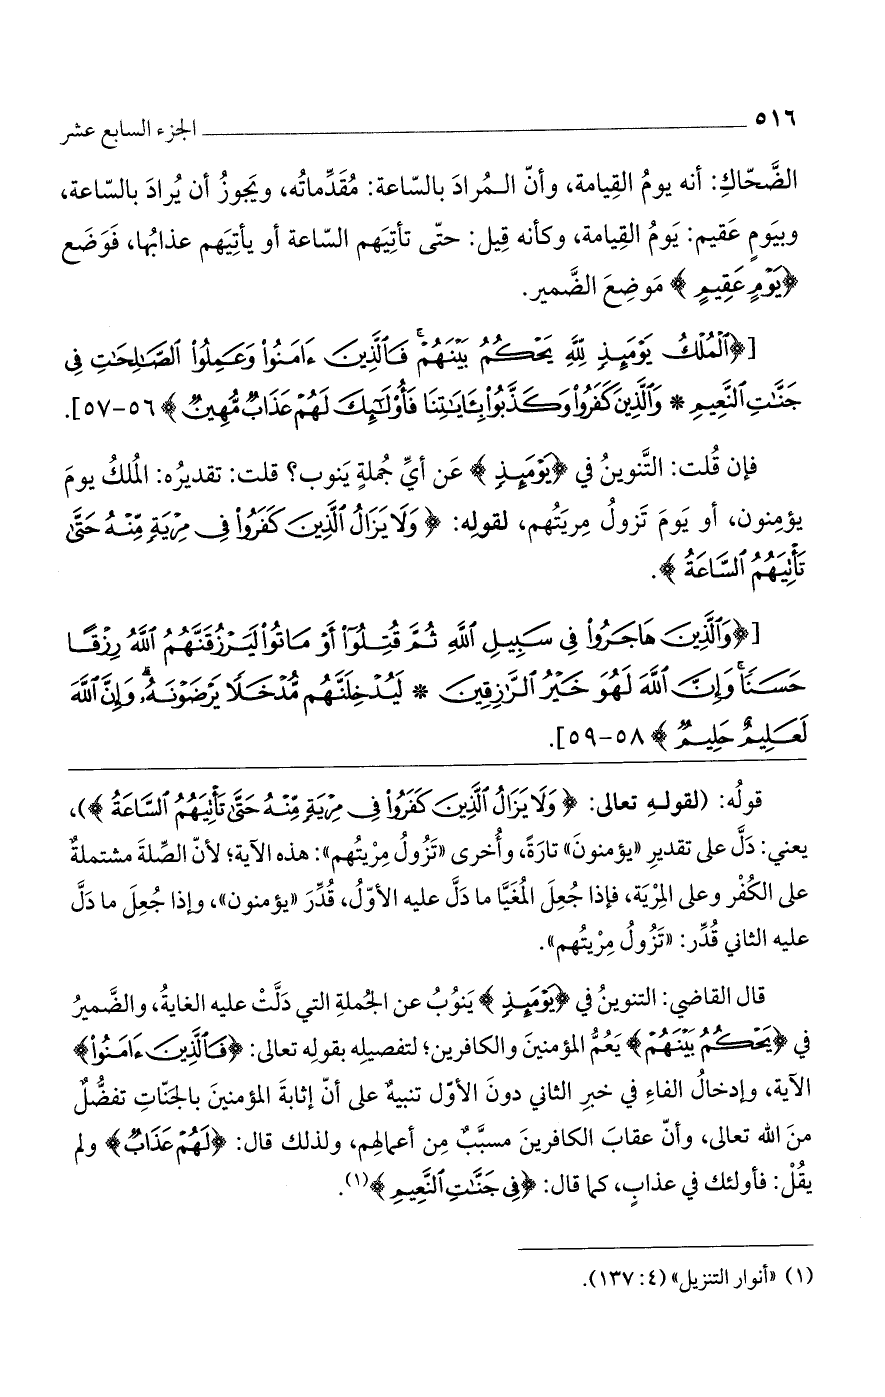 ٥١٦ الجزء السابع عشر
الضَّحّاكِ: أنه يومُ القِيامة، وأنّ الـمُرادَ بالسّاعة: مُقَدِّماتُه، ويَجوزُ أن يُرادَ بالسّاعة،
وبيَومٍ عَقيم: يَومُ القِيامة، وكأنه قِيل: حتّى تأتِيَهم السّاعة أو يأتِيَهم عذابُها، فَوَضَع
﴿يَوْمٍ عَقِيمٍ﴾ مَوضِعَ الضَّمير.
[﴿ٱلْمُلْكُ يَوْمَئِذٍ لِّلَّهِ يَحْكُمُ بَيْنَهُمْ ۚ فَٱلَّذِينَ ءَامَنُوا۟ وَعَمِلُوا۟ ٱلصَّـٰلِحَـٰتِ فِى
جَنَّـٰتِ ٱلنَّعِيمِ * وَٱلَّذِينَ كَفَرُوا۟ وَكَذَّبُوا۟ بِـَٔايَـٰتِنَا فَأُو۟لَـٰٓئِكَ لَهُمْ عَذَابٌ مُّهِينٌ﴾ ٥٦-٥٧].
فإن قُلت: التَّنوينُ في ﴿يَوْمَئِذٍ﴾ عَن أيِّ جُملةٍ يَنوب؟ قلت: تقديرُه: المُلكُ يومَ
يؤمِنون، أو يَومَ تَزولُ مِريَتُهم، لقولِه: ﴿وَلَا يَزَالُ ٱلَّذِينَ كَفَرُوا۟ فِى مِرْيَةٍ مِّنْهُ حَتَّىٰ
تَأْتِيَهُمُ ٱلسَّاعَةُ﴾.
[﴿وَٱلَّذِينَ هَاجَرُوا۟ فِى سَبِيلِ ٱللَّهِ ثُمَّ قُتِلُوٓا۟ أَوْ مَاتُوا۟ لَيَرْزُقَنَّهُمُ ٱللَّهُ رِزْقًا
حَسَنًا ۚ وَإِنَّ ٱللَّهَ لَهُوَ خَيْرُ ٱلرَّٰزِقِينَ * لَيُدْخِلَنَّهُم مُّدْخَلًا يَرْضَوْنَهُۥ ۗ وَإِنَّ ٱللَّهَ
لَعَلِيمٌ حَلِيمٌ﴾ ٥٨-٥٩].
قولُه: (لقولِـهِ تعالى: ﴿وَلَا يَزَالُ ٱلَّذِينَ كَفَرُوا۟ فِى مِرْيَةٍ مِّنْهُ حَتَّىٰ تَأْتِيَهُمُ ٱلسَّاعَةُ﴾)،
يعني: دَلَّ على تقديرِ «يؤمنونَ» تارَةً، وأُخرى «تَزُولُ مِرْيتُهم»: هذه الآية؛ لأنّ الصِّلةَ مشتملةٌ
على الكُفْر وعلى المِرْيَة، فإذا جُعِلَ المُغَيَّا ما دَلَّ عليه الأوّلُ، قُدِّرَ «يؤمنون»، وإذا جُعِلَ ما دَلَّ
عليه الثاني قُدِّر: «تَزُولُ مِرْيتُهم».
قال القاضي: التنوينُ في ﴿يَوْمَئِذٍ﴾ يَنوُبُ عن الجُملةِ التي دَلَّتْ عليه الغايةُ، والضَّميرُ
في ﴿يَحْكُمُ بَيْنَهُمْ﴾ يَعُمُّ المؤمنينَ والكافرين؛ لتفصيلِه بقولِه تعالى: ﴿فَٱلَّذِينَ ءَامَنُوا۟﴾
الآية، وإدخالُ الفاءِ في خبرِ الثاني دونَ الأوّل تنبيهٌ على أنّ إثابةَ المؤمنينَ بالجَنّاتِ تفضُّلٌ
منَ الله تعالى، وأنّ عقابَ الكافرينَ مسبَّبٌ مِن أعمالِهم، ولذلك قال: ﴿لَهُمْ عَذَابٌ﴾ ولم
يقُلْ: فأولئك في عذابٍ، كما قال: ﴿فِى جَنَّـٰتِ ٱلنَّعِيمِ﴾(١).
(١) «أنوار التنزيل» (٤: ١٣٧).